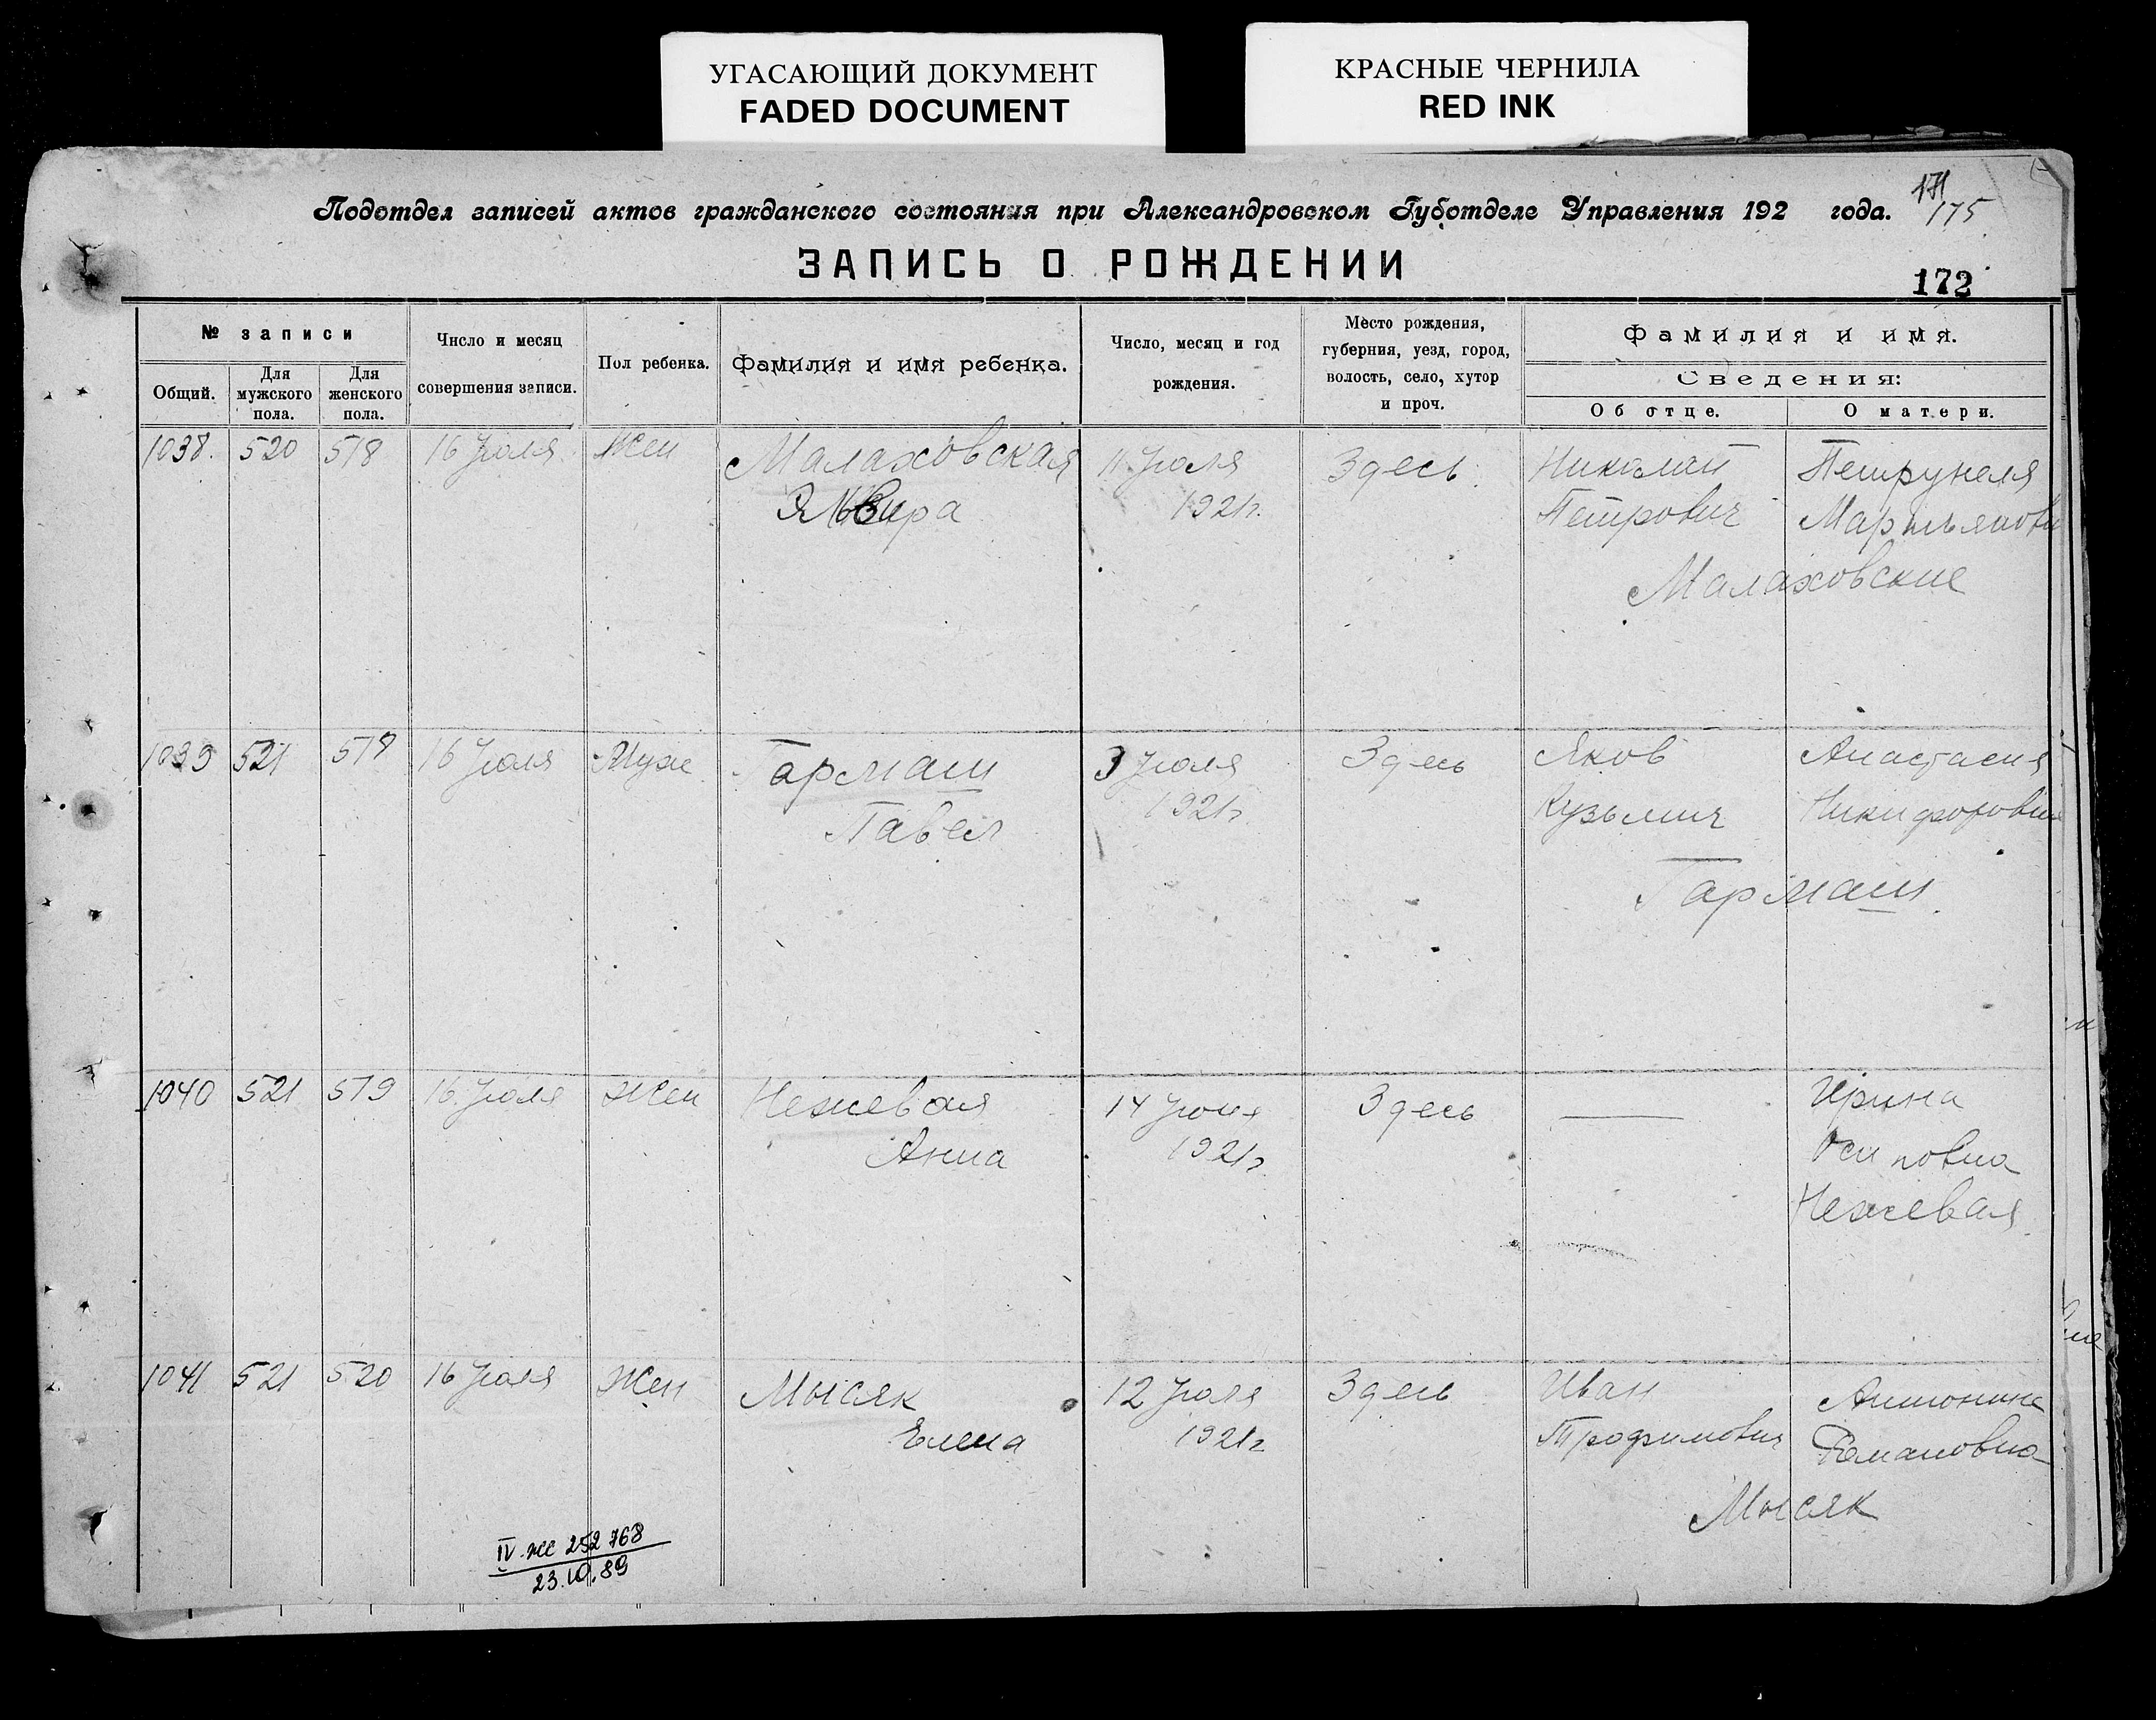 УГАСАЮЩИЙ ДОКУМЕНТ
FADED DOCUMENT
КРАСНЫЕ ЧЕРНИЛА
RED INK
171
175
Подотдел записей актов гражданского состояния при Александровском Губотделе Управления 192 года.
ЗАПИСЬ О РОЖДЕНИИ
172
№ записи
Общий.
Для мужского пола.
Для женского пола.
Число и месяц совершения записи.
Пол ребенка.
Фамилия и имя ребенка.
Число, месяц и год рождения.
Место рождения, губерния, уезд, город, волость, село, хутор и проч.
Фамилия и имя.
Сведения:
Об отце.
О матери.
1038. 520 518 16 Июля Жен Малаховская 11 Июля Здесь. Николай Петрунеля
1921г. Петрович Мартьянови
Малаховские
1039 521 518 16 Июля Муж Гармаш 3 Июля Здесь Яков Анастасия
Павел 1921г. Кузьмич Никифоровна
Гармаш.
1040 521 519 16 Июля Жен Нежевая 14 Июня Здесь — Ирина
Анна 1921г Осиповна
Нежевая
1041 521 520 16 Июля Жен Мысяк 12 Июля Здесь Иван Антонина
Елена 1921г Трофимович Романовна
Мысяк
IV-ЖС 252768
23.10.89